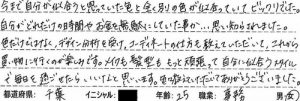 今まで自分が似合うと思っていた色と全く別の色が似合っていてビックリでした。
自分がどれだけの時間やお金を無駄にしていた事か…思い知らされました。
色だけではなく、デザイン分析を受け、コーディネートの仕方も教えていただいて、これから
買い物に行くのが楽しみです。メイクも髪型ももっと頑張って自分に似合うスタイル
で毎日を過ごせたら、いいなと思います。色々教えていただいてありがとうございました。
都道府県: 千葉 イニシャル: 年齢: 25 職業: 事務 男・女